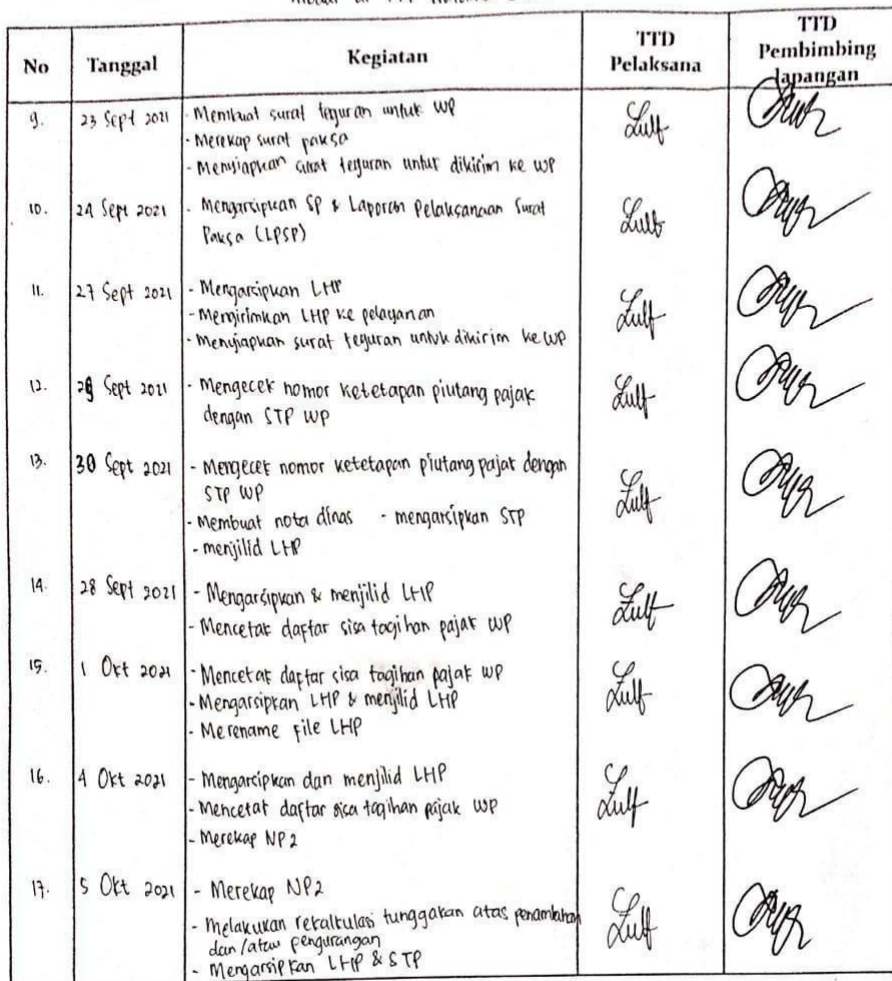 No Tanggal Kegiatan TTD Pelaksana TTD Pembimbing lapangan
9. 23 Sept 2021 - Membuat surat teguran untuk WP Zulf
- Merekap surat paksa
- Menyiapkan surat teguran untuk dikirim ke WP
10. 24 Sept 2021 - Mengarsipkan SP & Laporan Pelaksanaan Surat Zulf
Paksa (LPSP)
11. 27 Sept 2021 - Mengarsipkan LHP Zulf
- Mengirimkan LHP ke pelayanan
- Menyiapkan surat teguran untuk dikirim ke WP
12. Sept 2021 - Mengecek nomor ketetapan piutang pajak Zulf
dengan STP WP
13. 30 Sept 2021 - Mengecek nomor ketetapan piutang pajak dengan Zulf
STP WP
- Membuat nota dinas - mengarsipkan STP
- menjilid LHP
14. 28 Sept 2021 - Mengarsipkan & menjilid LHP Zulf
- Mencetak daftar sisa tagihan pajak WP
15. 1 Okt 2021 - Mencetak daftar sisa tagihan pajak WP Zulf
- Mengarsipkan LHP & menjilid LHP
- Merename file LHP
16. 4 Okt 2021 - Mengarsipkan dan menjilid LHP Zulf
- Mencetak daftar sisa tagihan pajak WP
- Merekap NP2
17. 5 Okt 2021 - Merekap NP2 Zulf
- Melakukan rekalkulasi tunggakan atas penambahan
dan/atau pengurangan
- Mengarsipkan LHP & STP